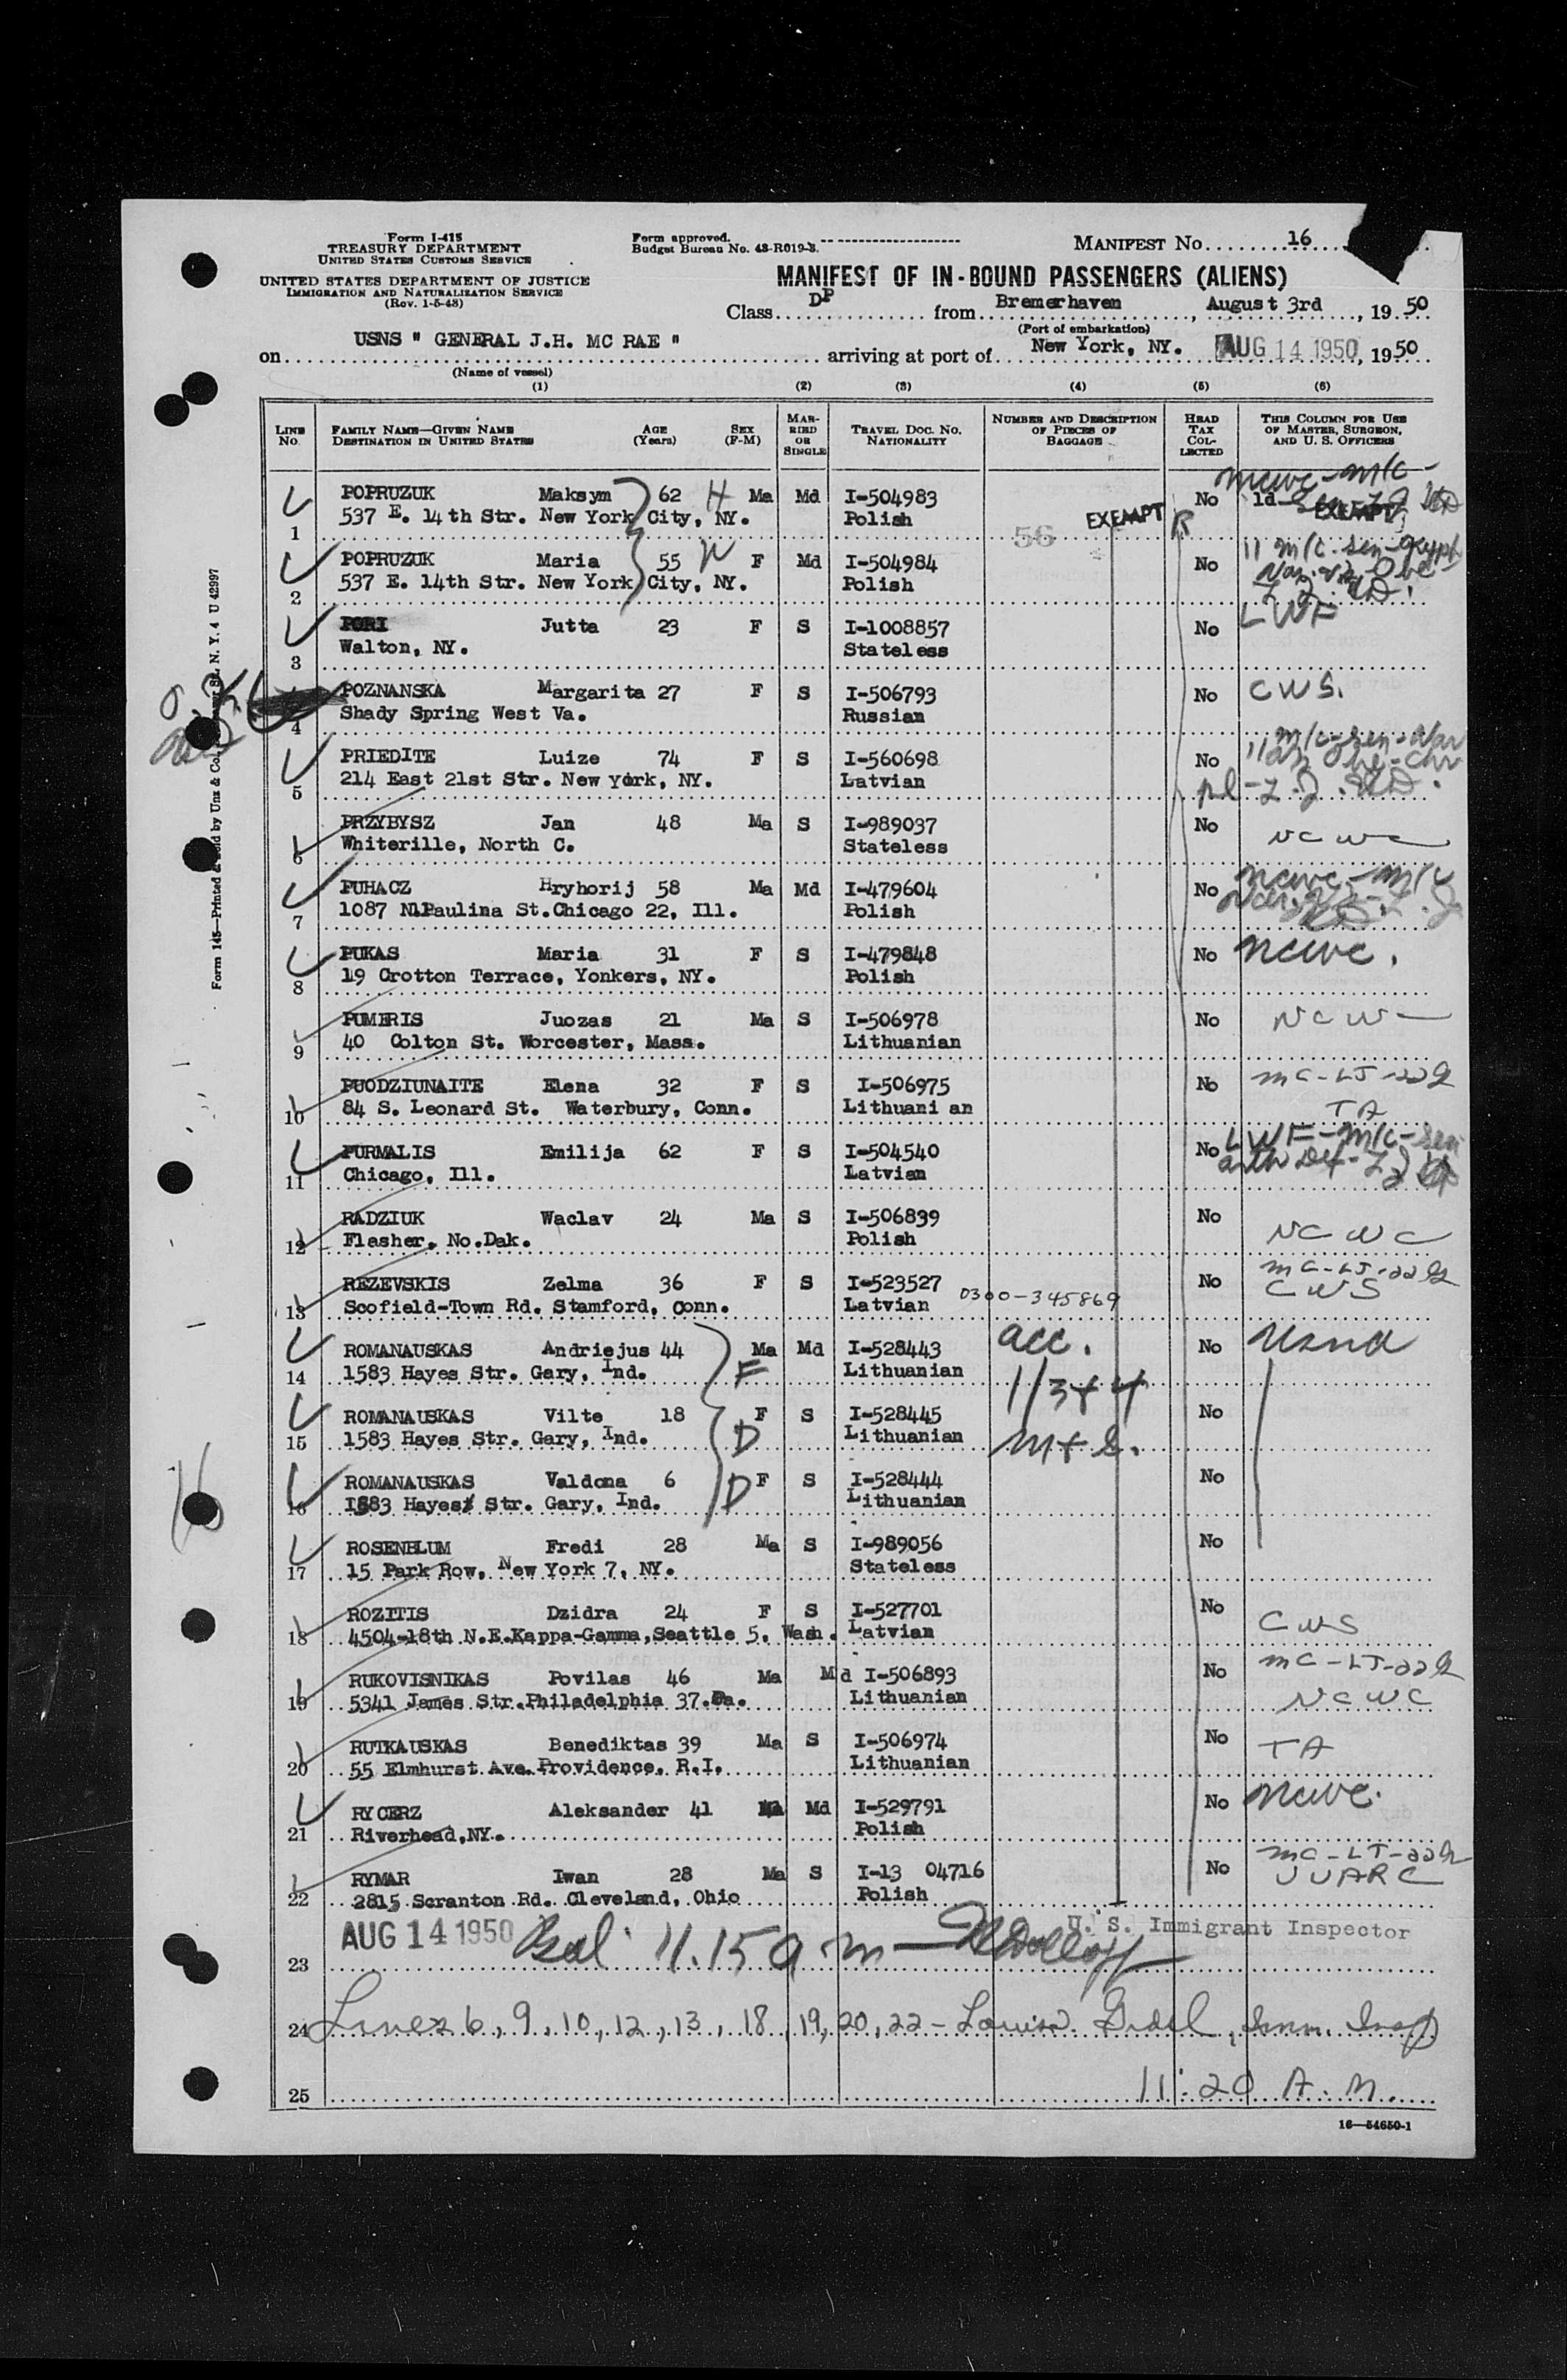 Form I-415
TREASURY DEPARTMENT
UNITED STATES CUSTOMS SERVICE
UNITED STATES DEPARTMENT OF JUSTICE
IMMIGRATION AND NATURALIZATION SERVICE
(Rev. 1-5-48)
Form approved.
Budget Bureau No. 43-R019-3.
MANIFEST NO. 16
MANIFEST OF IN-BOUND PASSENGERS (ALIENS)
Class DP from Bremerhaven, August 3rd, 19 50
(Port of embarkation)
on USNS " GENERAL J.H. MC RAE " arriving at port of New York, NY. AUG 14 1950, 19 50
(Name of vessel)
(1) (2) (3) (4) (5) (6)
LINE NO. FAMILY NAME—GIVEN NAME DESTINATION IN UNITED STATES AGE (Years) SEX (F-M) MARRIED OR SINGLE TRAVEL DOC. NO. NATIONALITY NUMBER AND DESCRIPTION OF PIECES OF BAGGAGE HEAD TAX COLLECTED THIS COLUMN FOR USE OF MASTER, SURGEON, AND U. S. OFFICERS
POPRUZUK Maksym 62 H Ma Md I-504983 No
1 537 E. 14th Str. New York City, NY. Polish 56 EXEMPT R EXEMPT
POPRUZUK Maria 55 W F Md I-504984 No
2 537 E. 14th Str. New York City, NY. Polish
PORI Jutta 23 F S I-1008857 No LWF
3 Walton, NY. Stateless
POZNANSKA Margarita 27 F S I-506793 No CWS.
4 Shady Spring West Va. Russian
PRIEDITE Luize 74 F S I-560698 No
5 214 East 21st Str. New York, NY. Latvian
PRZYBYSZ Jan 48 Ma S I-989037 No NCWC
6 Whiterille, North C. Stateless
PUHACZ Hryhorij 58 Ma Md I-479604 No
7 1087 N.Paulina St.Chicago 22, Ill. Polish
PUKAS Maria 31 F S I-479848 No NCWC.
8 19 Crotton Terrace, Yonkers, NY. Polish
PUMERIS Juozas 21 Ma S I-506978 No NCW
9 40 Colton St. Worcester, Mass. Lithuanian
PUODZIUNAITE Elena 32 F S I-506975 No
10 84 S. Leonard St. Waterbury, Conn. Lithuani an TA
PURMALIS Emilija 62 F S I-504540 No LWF-M/C-Sen
11 Chicago, Ill. Latvian
RADZIUK Waclav 24 Ma S I-506839 No NCWC
12 Flasher, No.Dak. Polish
REZEVSKIS Zelma 36 F S I-523527 No CWS
13 Scofield-Town Rd. Stamford, Conn. Latvian 0300-345869
ROMANAUSKAS Andriejus 44 Ma Md I-528443 acc. No Usna
14 1583 Hayes Str. Gary, Ind. F Lithuanian
ROMANAUSKAS Vilte 18 F S I-528445 No
15 1583 Hayes Str. Gary, Ind. D Lithuanian
ROMANAUSKAS Valdona 6 D F S I-528444 No
16 1583 Hayes Str. Gary, Ind. Lithuanian
ROSENBLUM Fredi 28 Ma S I-989056 No
17 15 Park Row, New York 7, NY. Stateless
ROZITIS Dzidra 24 F S I-527701 No CWS
18 4504-18th N.E.Kappa-Gamma,Seattle 5, Wash. Latvian
RUKOVISNIKAS Povilas 46 Ma Md I-506893 No
19 5341 James Str.Philadelphia 37.Pa. Lithuanian NCWC
RUTKAUSKAS Benediktas 39 Ma S I-506974 No TA
20 55 Elmhurst Ave. Providence, R.I. Lithuanian
RYCERZ Aleksander 41 Md I-529791 No NCWC.
21 Riverhead,NY. Polish
RYMAR Iwan 28 Ma S I-13 04716 No
22 2815 Scranton Rd. Cleveland, Ohio Polish
AUG 14 1950 11.15 a m U. S. Immigrant Inspector
23
24 Lines 6, 9, 10, 12, 13, 18, 19, 20, 22 - Imm. Insp
25 11:20 A.M.
16—54650-1